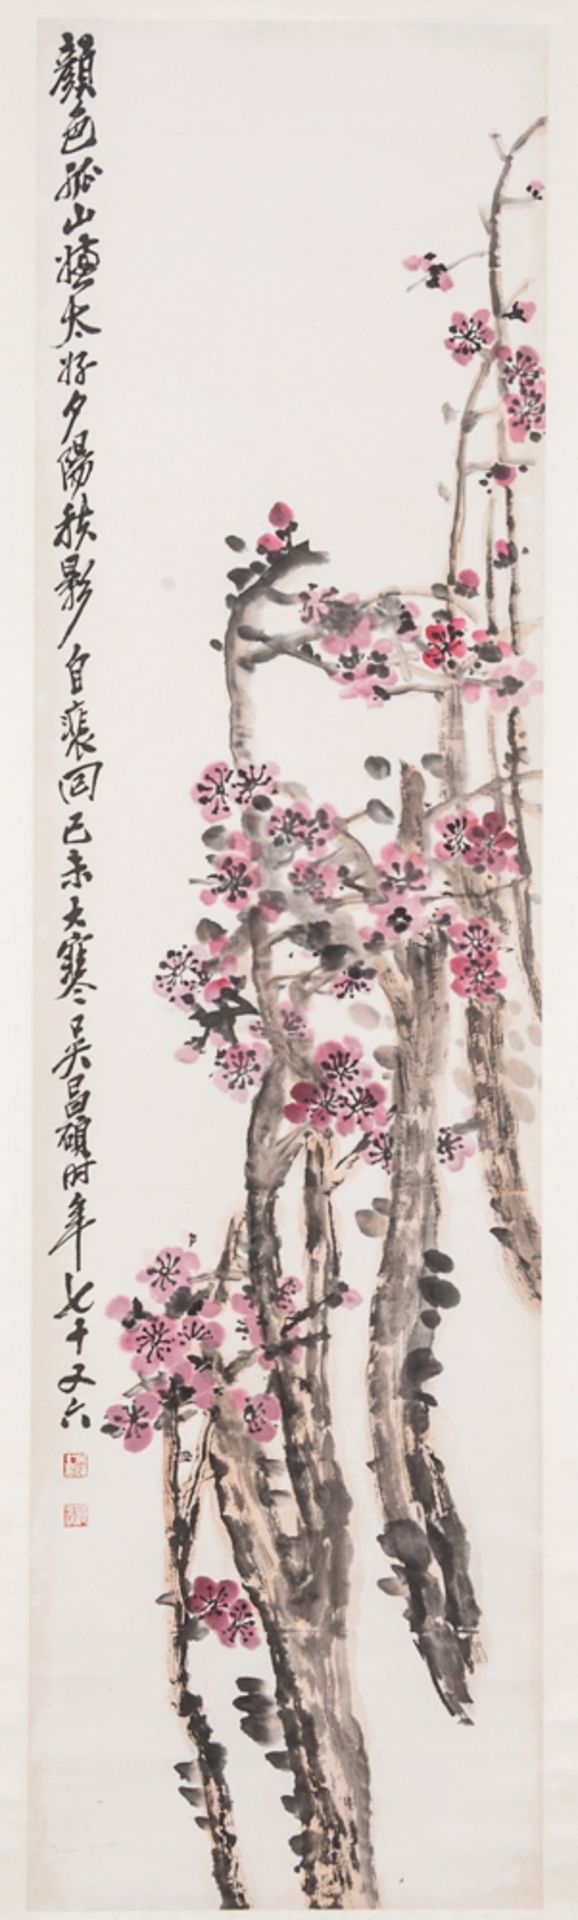 顏色孤山㜣太好夕陽秩影自裵回己未大寒吳昌碩時年七十又六